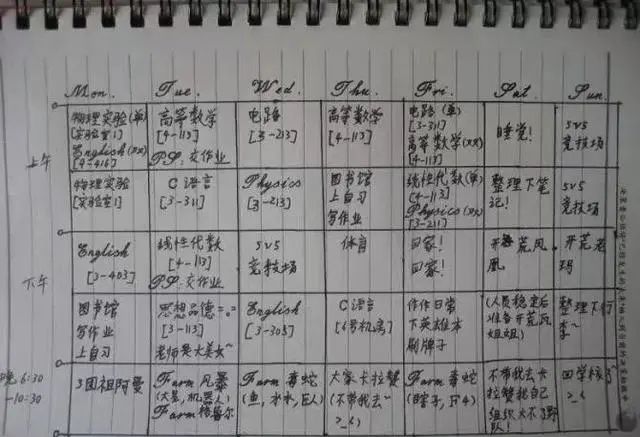 Mon. Tue. Wed. Thu. Fri. Sat. Sun.
上午
物理实验(单)
[实验室1]
English(双)
[4-416]
高等数学
[4-113]
P.S. 交作业
电路
[3-213]
高等数学
[4-113]
电路(单)
[3-311]
高等数学(双)
[4-113]
睡觉!
5v5
竞技场
物理实验
[实验室1]
C语言
[3-311]
Physics
[3-213]
图书馆
上自习
写作业
线性代数(单)
[4-113]
Physics(双)
[3-211]
整理下笔
记!
5v5
竞技场
下午
English
[3-403]
线性代数
[4-113]
P.S. 交作业
5v5
竞技场
体育
回家!
回家!
开荒风
凰
开荒老
玛
图书馆
写作业
上自习
思想品德=。=
[3-113]
老师是大美女~
English
[3-303]
C语言
[6号机房]
作作日常
下英雄本
刷牌子
(人员稳定后
准备开荒瓦
姐姐)
整理下行
李~
晚6:30
-10:30
3团祖阿曼
Farm 风暴
(大墓,机器人)
Farm 格鲁尔
Farm 毒蛇
(鱼,水水,巨人)
大家卡拉赞
(不带我去~
>_<
Farm 毒蛇
(瞎子,F4)
不带我去卡
拉赞我自己
组织大不了野
队!
回学校了
>_<